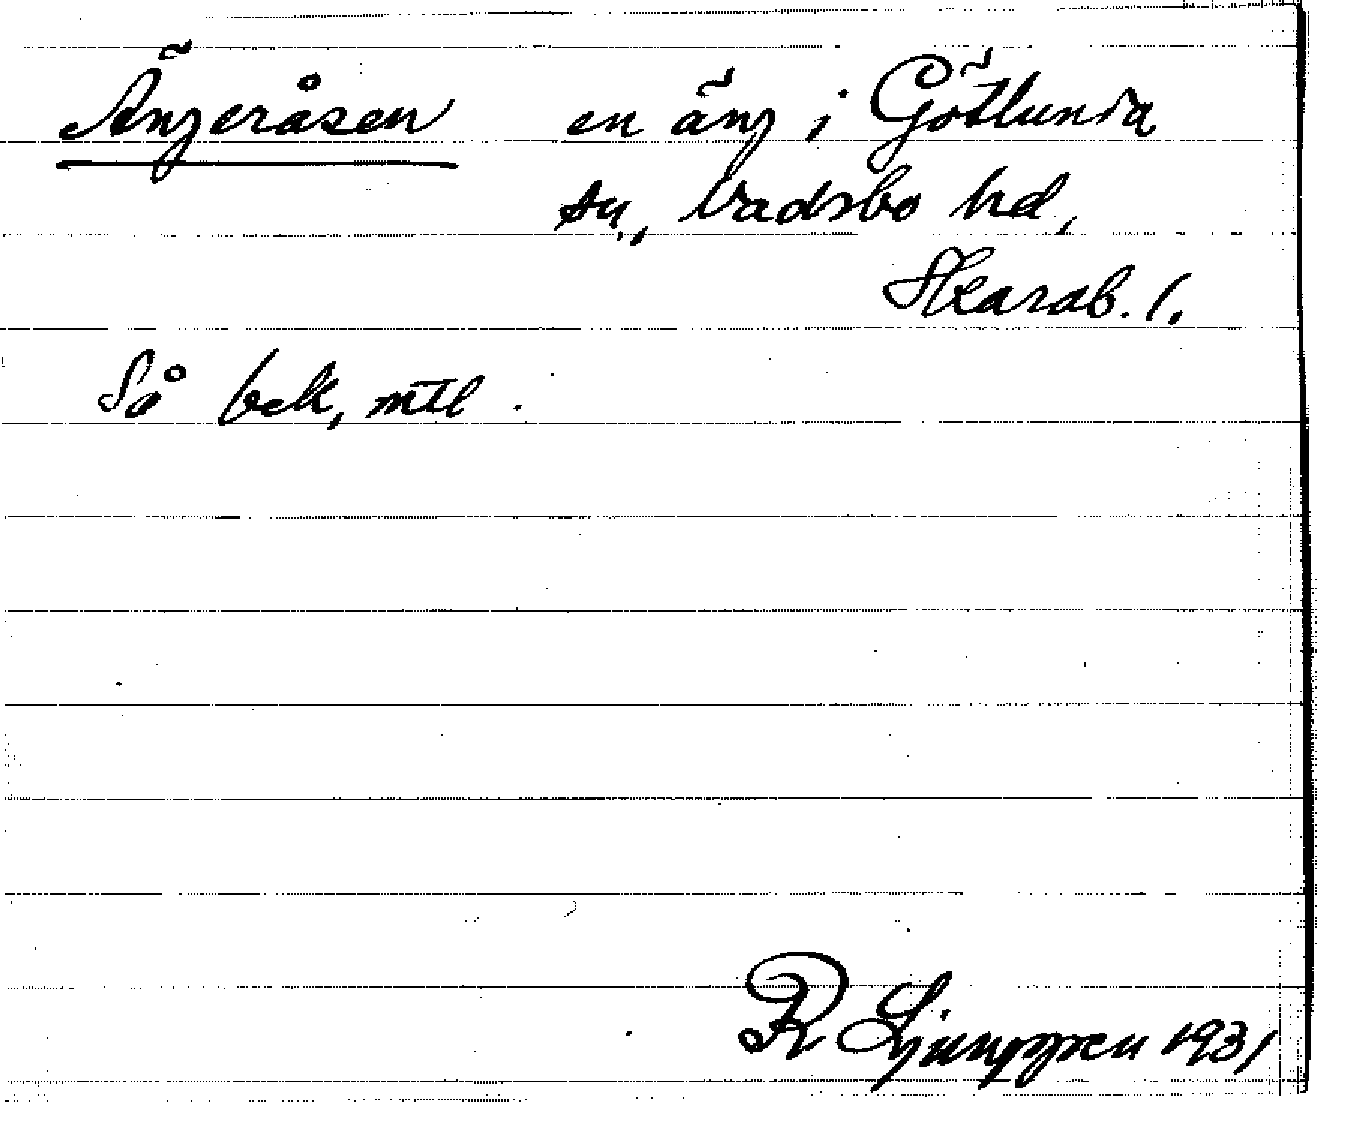 Ängeråsen en äng i Götlunda
sn, Vadsbo hd,
Skarab. l.
Så bek, mtl.
R Ljunggren 1931